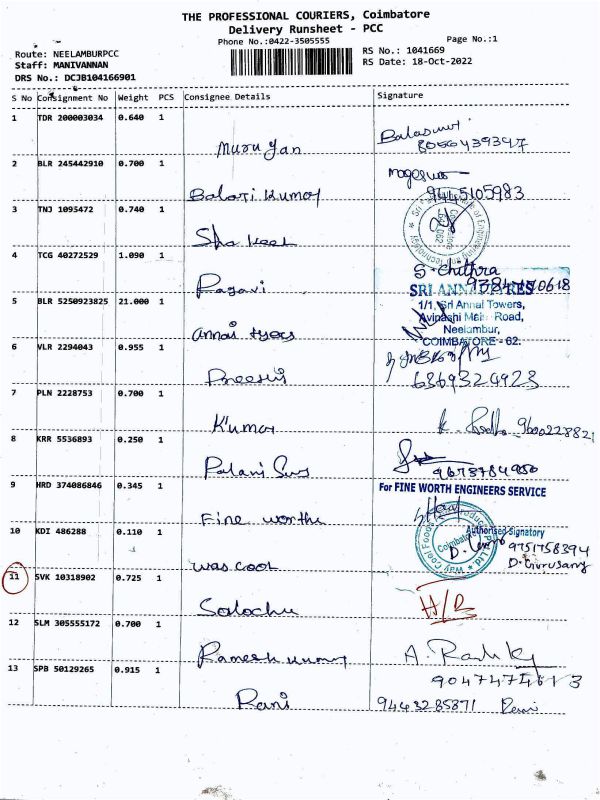 THE PROFESSIONAL COURIERS, Coimbatore
Delivery Runsheet - PCC
Phone No.:0422-3505555
Page No.:1
Route: NEELAMBURPCC
Staff: MANIVANNAN
DRS No.: DCJB104166901
RS No.: 1041669
RS Date: 18-Oct-2022
S No Consignment No Weight PCS Consignee Details Signature
1 TDR 200003034 0.640 1
Murugan
8056439347
2 BLR 245442910 0.700 1
Balaji Kumar
9445105983
3 TNJ 1095472 0.740 1
4 TCG 40272529 1.090 1
Ragavi
S. Chithra
5 BLR 5250923825 21.000 1
Annai tyers
SRI ANNAI TYRES
1/1, Sri Annai Towers,
Avinashi Main Road,
Neelambur,
COIMBATORE - 62.
6 VLR 2294043 0.955 1
6369324923
7 PLN 2228753 0.700 1
Kumar
9600228821
8 KRR 5536893 0.250 1
Palani
9 HRD 374086846 0.345 1
Fine worths
For FINE WORTH ENGINEERS SERVICE
Authorised Signatory
10 KDI 486288 0.110 1
way cool
9751758394
11 SVK 10318902 0.725 1
H/R
12 SLM 305555172 0.700 1
Ramesh Kumar
13 SPB 50129265 0.915 1
Rani
9443285871 Rani